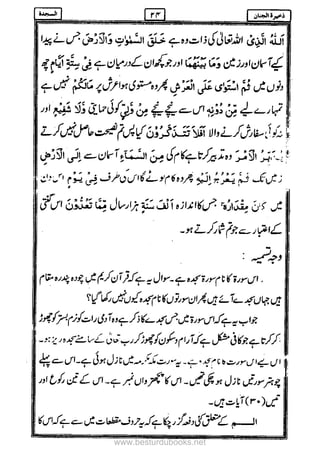 السجدة ٢٤ ذخیرۃ الجنان
اَللّٰهُ الَّذِیْ اللہ تعالیٰ کی ذات وہ ہے خَلَقَ السَّمٰوٰتِ وَالْاَرْضَ جس نے پیدا
کیے آسمان اور زمین وَمَا بَیْنَهُمَا اور جو کچھ ان کے درمیان ہے فِیْ سِتَّةِ اَیَّامٍ چھ
دنوں میں ثُمَّ اسْتَوٰی عَلَی الْعَرْشِ پھر وہ مستوی ہوا عرش پر مَالَکُمْ نہیں ہے
تمہارے لیے مِّنْ دُوْنِهٖ اس سے نیچے نیچے مِنْ وَّلِیٍّ کوئی حمایتی وَّلَا شَفِیْعٍ اور
نہ کوئی سفارش کرنے والا اَفَلَا تَتَذَکَّرُوْنَ کیا پس تم نصیحت حاصل نہیں کرتے
یُدَبِّرُ الْاَمْرَ وہ تدبیر کرتا ہے کام کی مِنَ السَّمَآءِ آسمان سے اِلَی الْاَرْضِ
زمین تک ثُمَّ یَعْرُجُ اِلَیْهِ پھر وہ کام لوٹے گا اس کی طرف فِیْ یَوْمٍ اس دن
میں کَانَ مِقْدَارُهٗٓ جس کا اندازہ اَلْفَ سَنَةٍ ہزار سال مِّمَّا تَعُدُّوْنَ اس گنتی
کے اعتبار سے جو تم شمار کرتے ہو۔
وجہ تسمیہ :
اس سورۃ کا نام سورۃ سجدہ ہے۔ سوال یہ ہے کہ قرآن کریم میں چودہ پندرہ مقام
ہیں جہاں سجدے آئے ہیں پھر ان سورتوں کا نام سجدہ کیوں نہیں رکھا گیا؟
جواب یہ ہے کہ اس سورۃ میں جس سجدے کا ذکر ہے وہ آدمی رات کو نرم بستر کو چھوڑ
کر کرتا ہے جو کافی مشکل ہے کہ آرام و سکون کو چھوڑ کر رب تعالیٰ کے سامنے سجدہ ریز ہو۔
اس لیے اس سورت کا نام سجدہ ہے۔ یہ سورت مکہ مکرمہ میں نازل ہوئی ہے۔ اس سے پہلے
چوہتر سورتیں نازل ہو چکی تھیں۔ اس کا پچھترواں نمبر ہے۔ اس کے تین رکوع اور
تیس (٣٠) آیات ہیں۔
الـــم کے متعلق کئی دفعہ گزر چکا ہے کہ یہ حروف مقطعات میں سے ہے کہ اس کا
www.besturdubooks.net